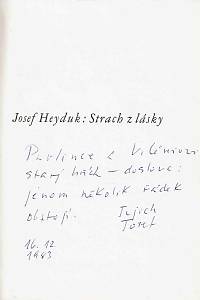 Josef Heyduk: Strach z lásky
Pavlínce a Viléniovi
starý hřích – doslova:
jenom několik řádek
obstojí.
Jejich
Josef
16. 12
1983